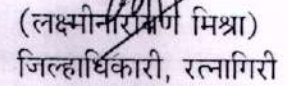 (लक्ष्मीनारायण मिश्रा)
जिल्हाधिकारी, रत्नागिरी